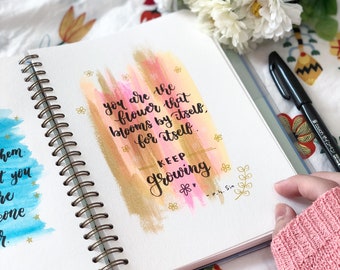 you are the
flower that
blooms by itself,
for itself.
KEEP
growing
hem
t you
re
one
r.